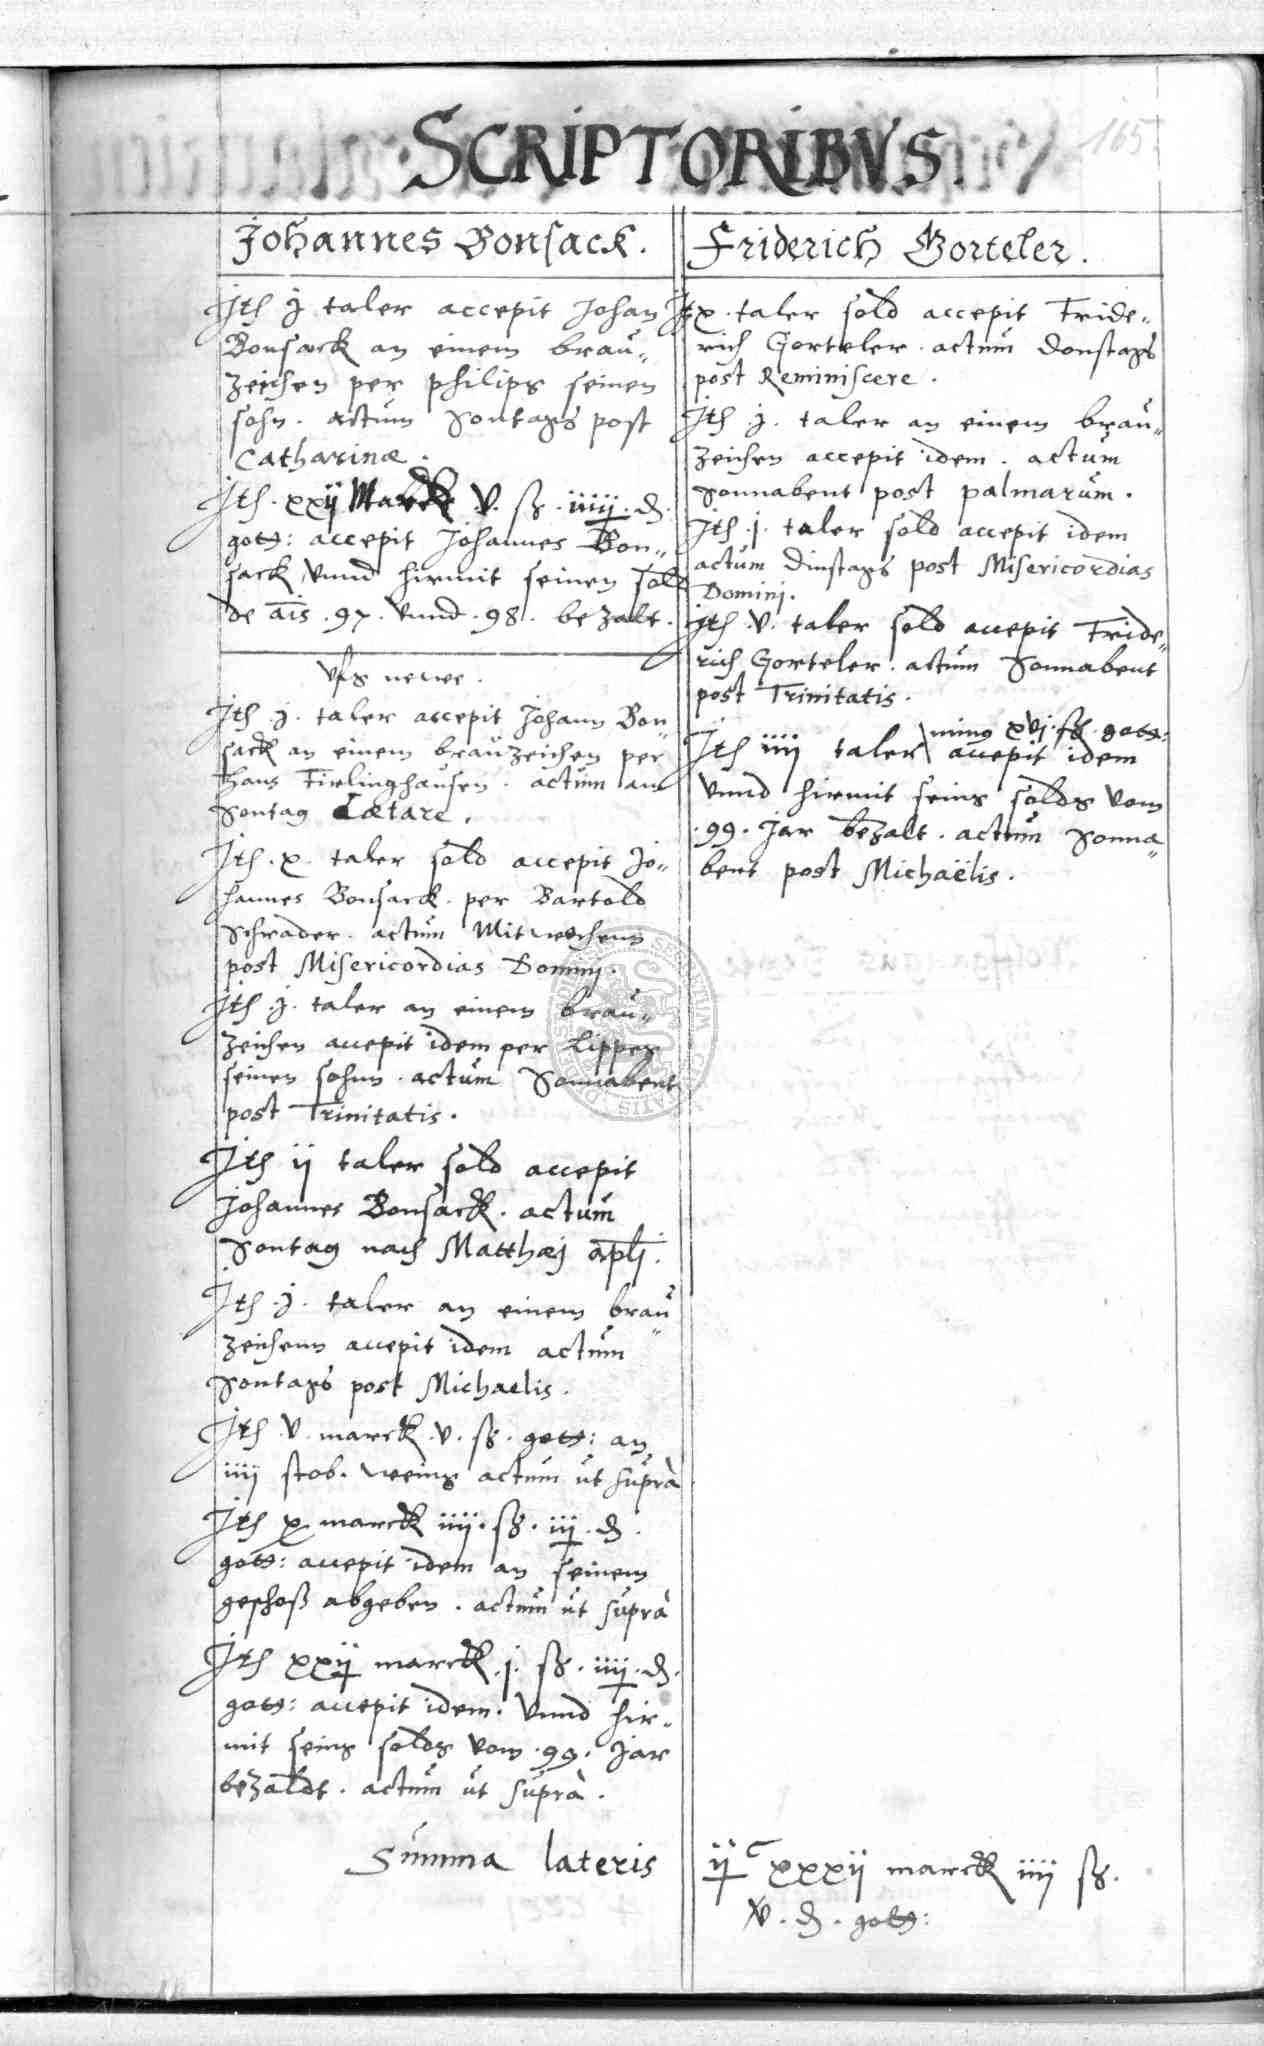 SCRIPTORIBVS.
165.
Johannes Bonsack.
Jth j taler accepit Johan
Bonsack an einem brau„
zeichen per philips seinen
sohn. actum Sontags post
Catharinæ.
Jth. xxij Marck v. ß. iiiij. d.
gott: accepit Johannes Bon„
sack, vnnd hirmit seinen sold
de a͞is .97. vnnd .98. bezalt.
vfs newe.
Jth .j. taler accepit Johann Bon„
sack an einem brauzeichen per
Hans Tirlinghausen. actum am
Sontag Lætare.
Jth. x. taler sold accepit Jo„
hannes Bonsack. per Bartold
Schrader. actum Mitwochenn
post Misericordias Dominj.
Jth .j. taler an einem brau„
zeichen accepit idem per Lipper
seinen sohnn. actum Sonnabent
post Trinitatis.
Jth ij taler sold accepit
Johannes Bonsack. actum
Sontag nach Matthæj apl͞j.
Jth .j. taler an einem brau„
zeichenn accepit idem actum
Sontags post Michaelis.
Jth .v. marck .v. ß. gott: an
iiij stob. weins actum ut suprà
Jth x marck iiij. ß. iij. d.
gott: accepit idem an seinem
geschoß abgeben. actum ut suprà
Jth xxij marck .j. ß. iiij. d.
gott: accepit idem. vnnd hir„
mit seins solds vom .99. Jar
bezaldt. actum ut suprà.
Summa lateris
Friderich Gorteler.
Jt x. taler sold accepit Fride„
rich Gorteler. actum Donstags
post Reminiscere.
Jth j. taler an einem brau„
zeichen accepit idem. actum
Sonnabent post palmarum.
Jth .j. taler sold accepit idem
actum Dinstags post Misericordias
Dominj.
Jth .v. taler sold accepit Fride„
rich Gorteler. actum Sonnabent
post Trinitatis.
minq xvj. ß. gott:
Jth iiij taler accepit idem
vnnd hirmit seins solds vom
.99. Jar bezalt. actum Sonna„
bent post Michaëlis.
ij C xxxij marck iiij ß.
v. d. gott: